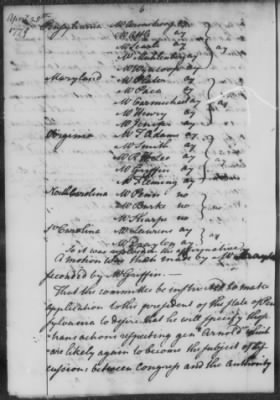 6
April 28th
1779
Pennsylvania Mr Armstrong ay
Mr Atlee ay
Mr Searle ay } ay
Mr Muhlenberg ay
Mr Wynkoop ay
Maryland Mr Plater ay
Mr Paca ay
Mr Carmichael ay } ay
Mr Henry ay
Mr Jenifer ay
Virginia Mr T Adams ay
Mr Smith ay
Mr R H Lee ay } ay
Mr Griffin ay
Mr Fleming ay
North Carolina Mr Penn no
Mr Burke no } no
Mr Sharpe no
So Carolina Mr Laurens ay
Mr Drayton ay } ay
So it was resolved in the affirmative
A motion was then made by
seconded by Mr Griffin. —
That the committee be instructed to make
application to the president of the state of Penn
sylvania to desire that he will specify those
transactions respecting genl Arnold which
are likely again to become the subject of dis
cussions between Congress and the Authority